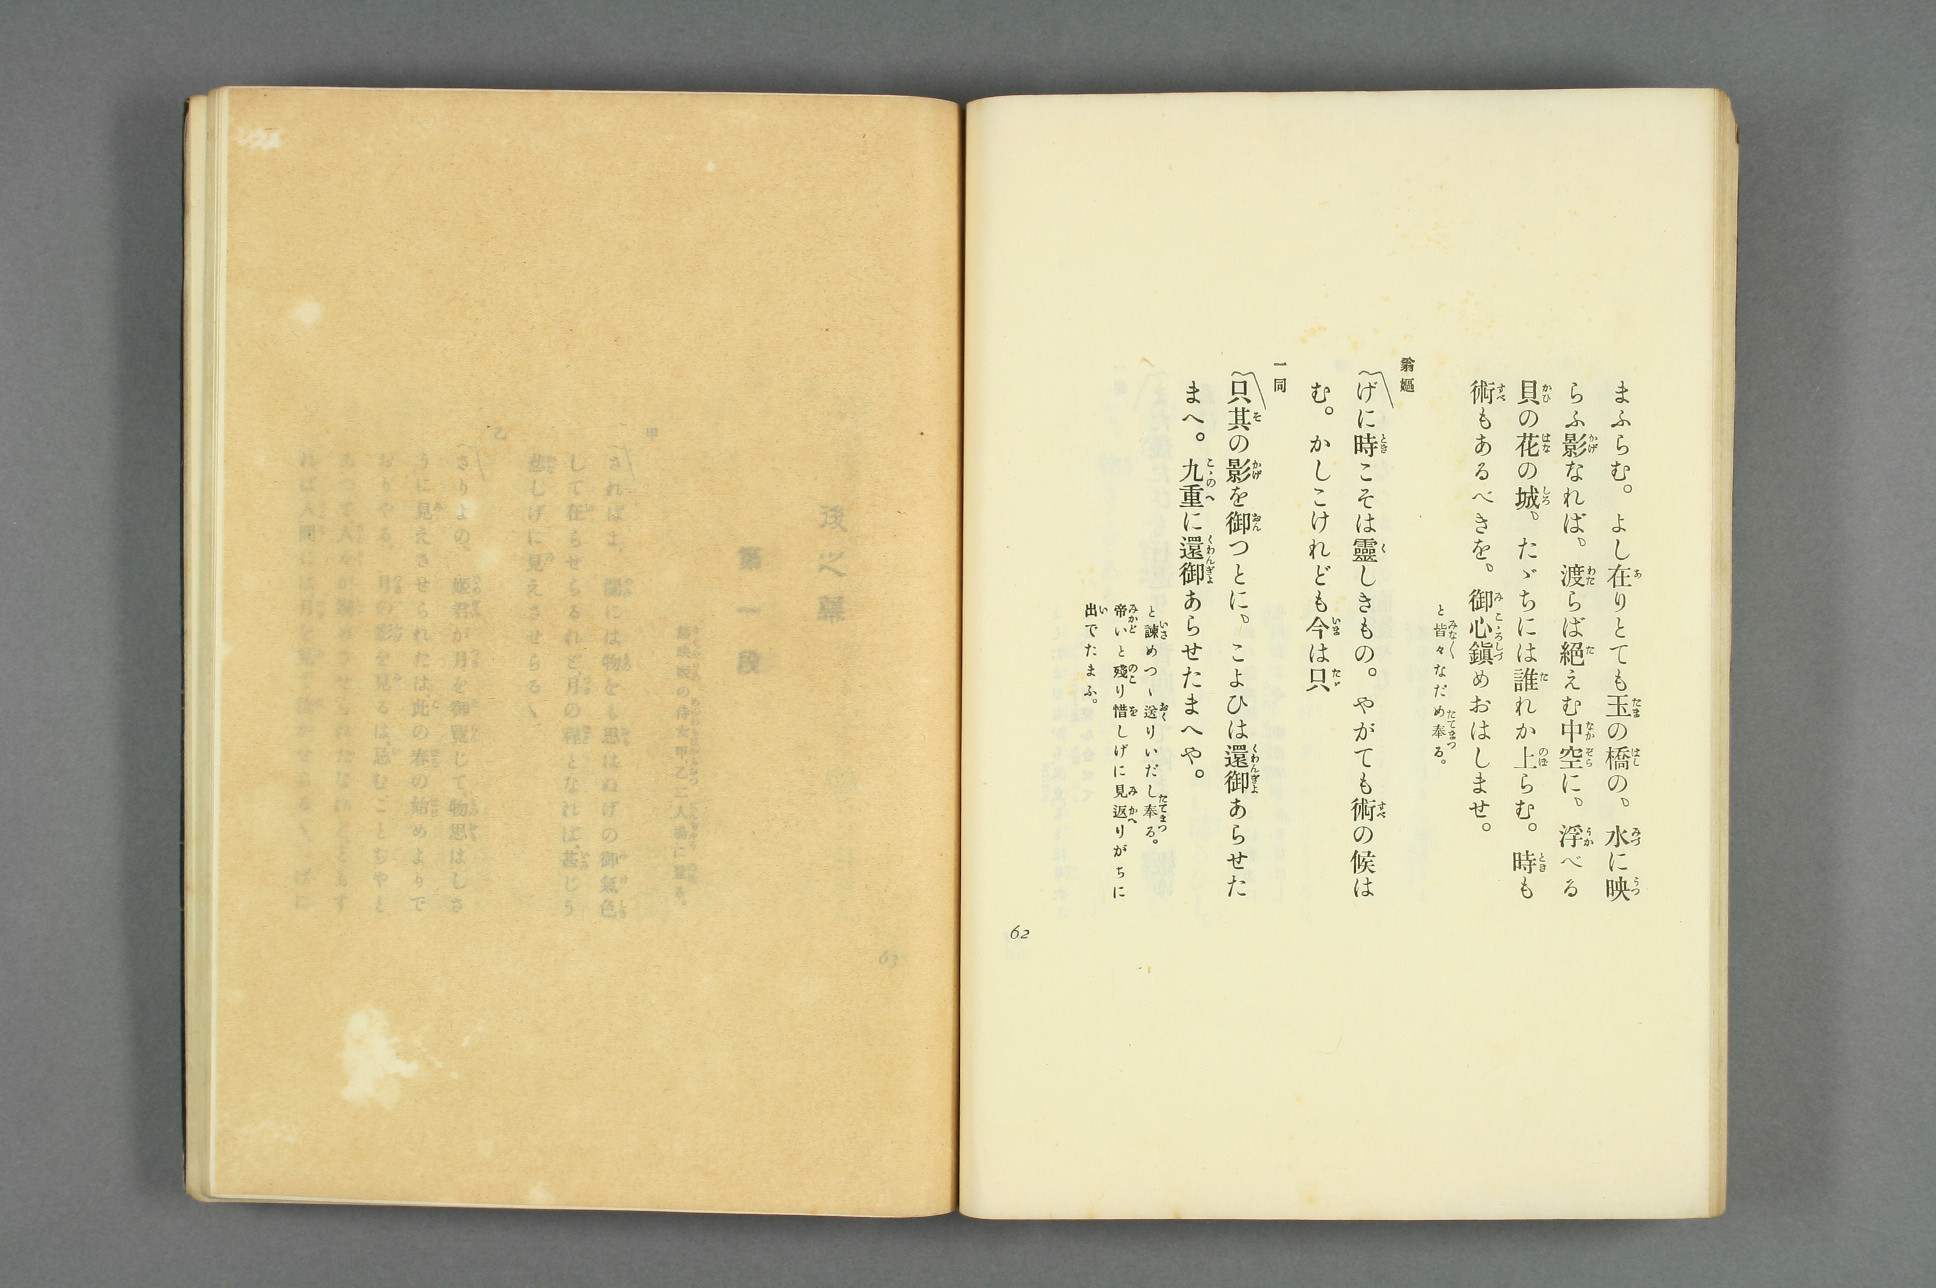 まふらむ。よし在りとても玉の橋の、水に映
らふ影なれば、渡らば絶えむ中空に、浮べる
貝の花の城、たゞちには誰れか上らむ。時も
術もあるべきを。御心鎭めおはしませ。
と皆々なだめ奉る。
翁嫗
げに時こそは靈しきもの。やがても術の候は
む。かしこけれども今は只
一同
只其の影を御つとに、こよひは還御あらせた
まへ。九重に還御あらせたまへや。
と諫めつゝ送りいだし奉る。
帝いと殘り惜しげに見返りがちに
出でたまふ。
62
後之幕
第一段
甲
さればよ、
して在らせらるれど、月の種となれば、甚じう
悲しげに見えさせらるゝ。
乙
さりよの、姫君が月を御覽じて、物思はしさ
うに見えさせられたは此の春の始めよりで
おりやる。月の影を見るは忌むことぢやと
63